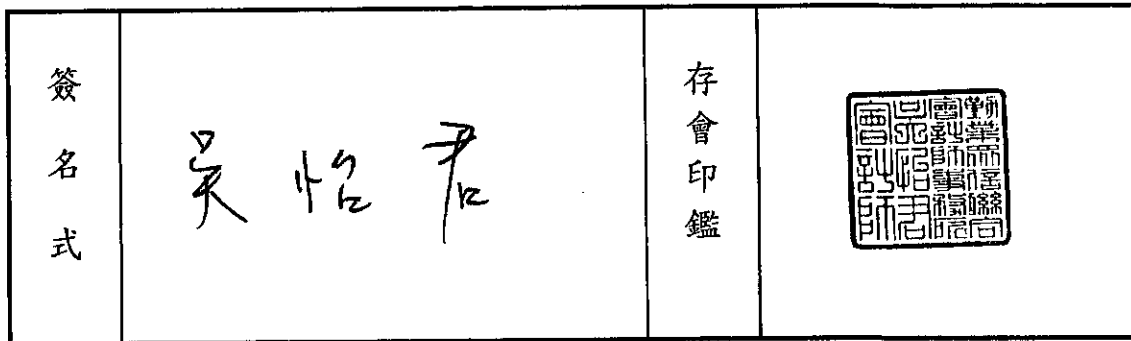 簽名式
吳怡君
存會印鑑
勤業眾信聯合
會計師事務所
吳怡君
會計師